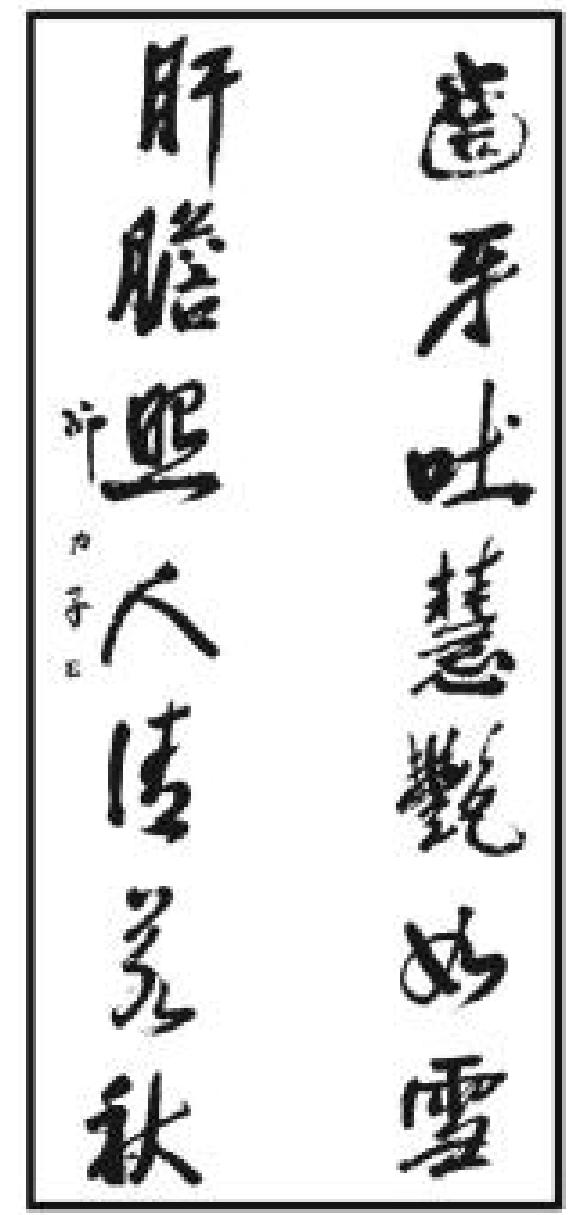 齒牙吐慧艷如雪
肝膽照人清若秋
邵力子